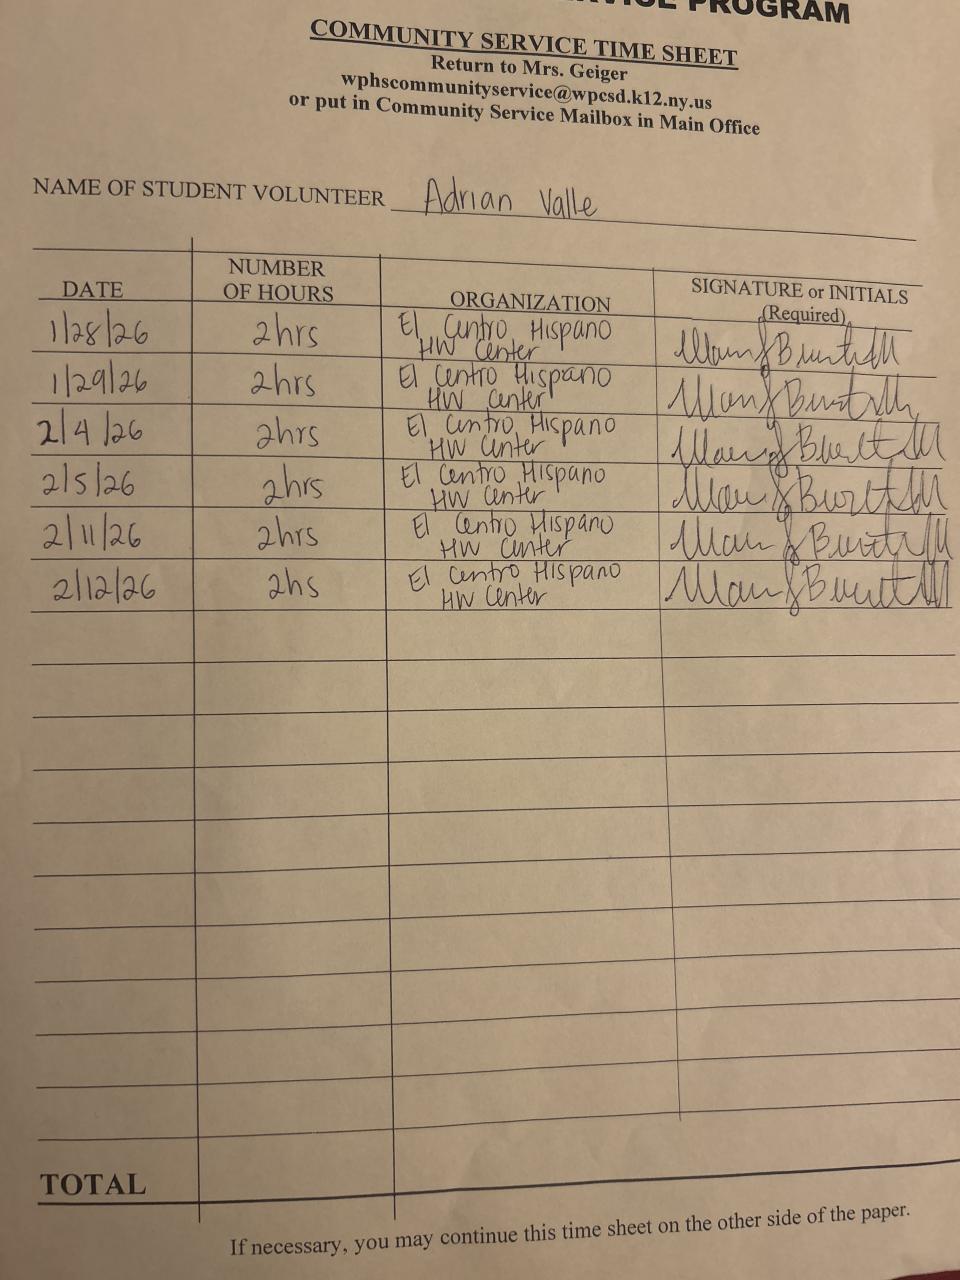 PROGRAM
COMMUNITY SERVICE TIME SHEET
Return to Mrs. Geiger
wphscommunityservice@wpcsd.k12.ny.us
or put in Community Service Mailbox in Main Office
NAME OF STUDENT VOLUNTEER Adrian Valle
DATE NUMBER OF HOURS ORGANIZATION SIGNATURE or INITIALS (Required)
1/28/26 2hrs El Centro Hispano HW Center
1/29/26 2hrs El Centro Hispano HW Center
2/4/26 2hrs El Centro Hispano HW Center
2/5/26 2hrs El Centro Hispano HW Center
2/11/26 2hrs El Centro Hispano HW Center
2/12/26 2hs El Centro Hispano HW Center
TOTAL
If necessary, you may continue this time sheet on the other side of the paper.